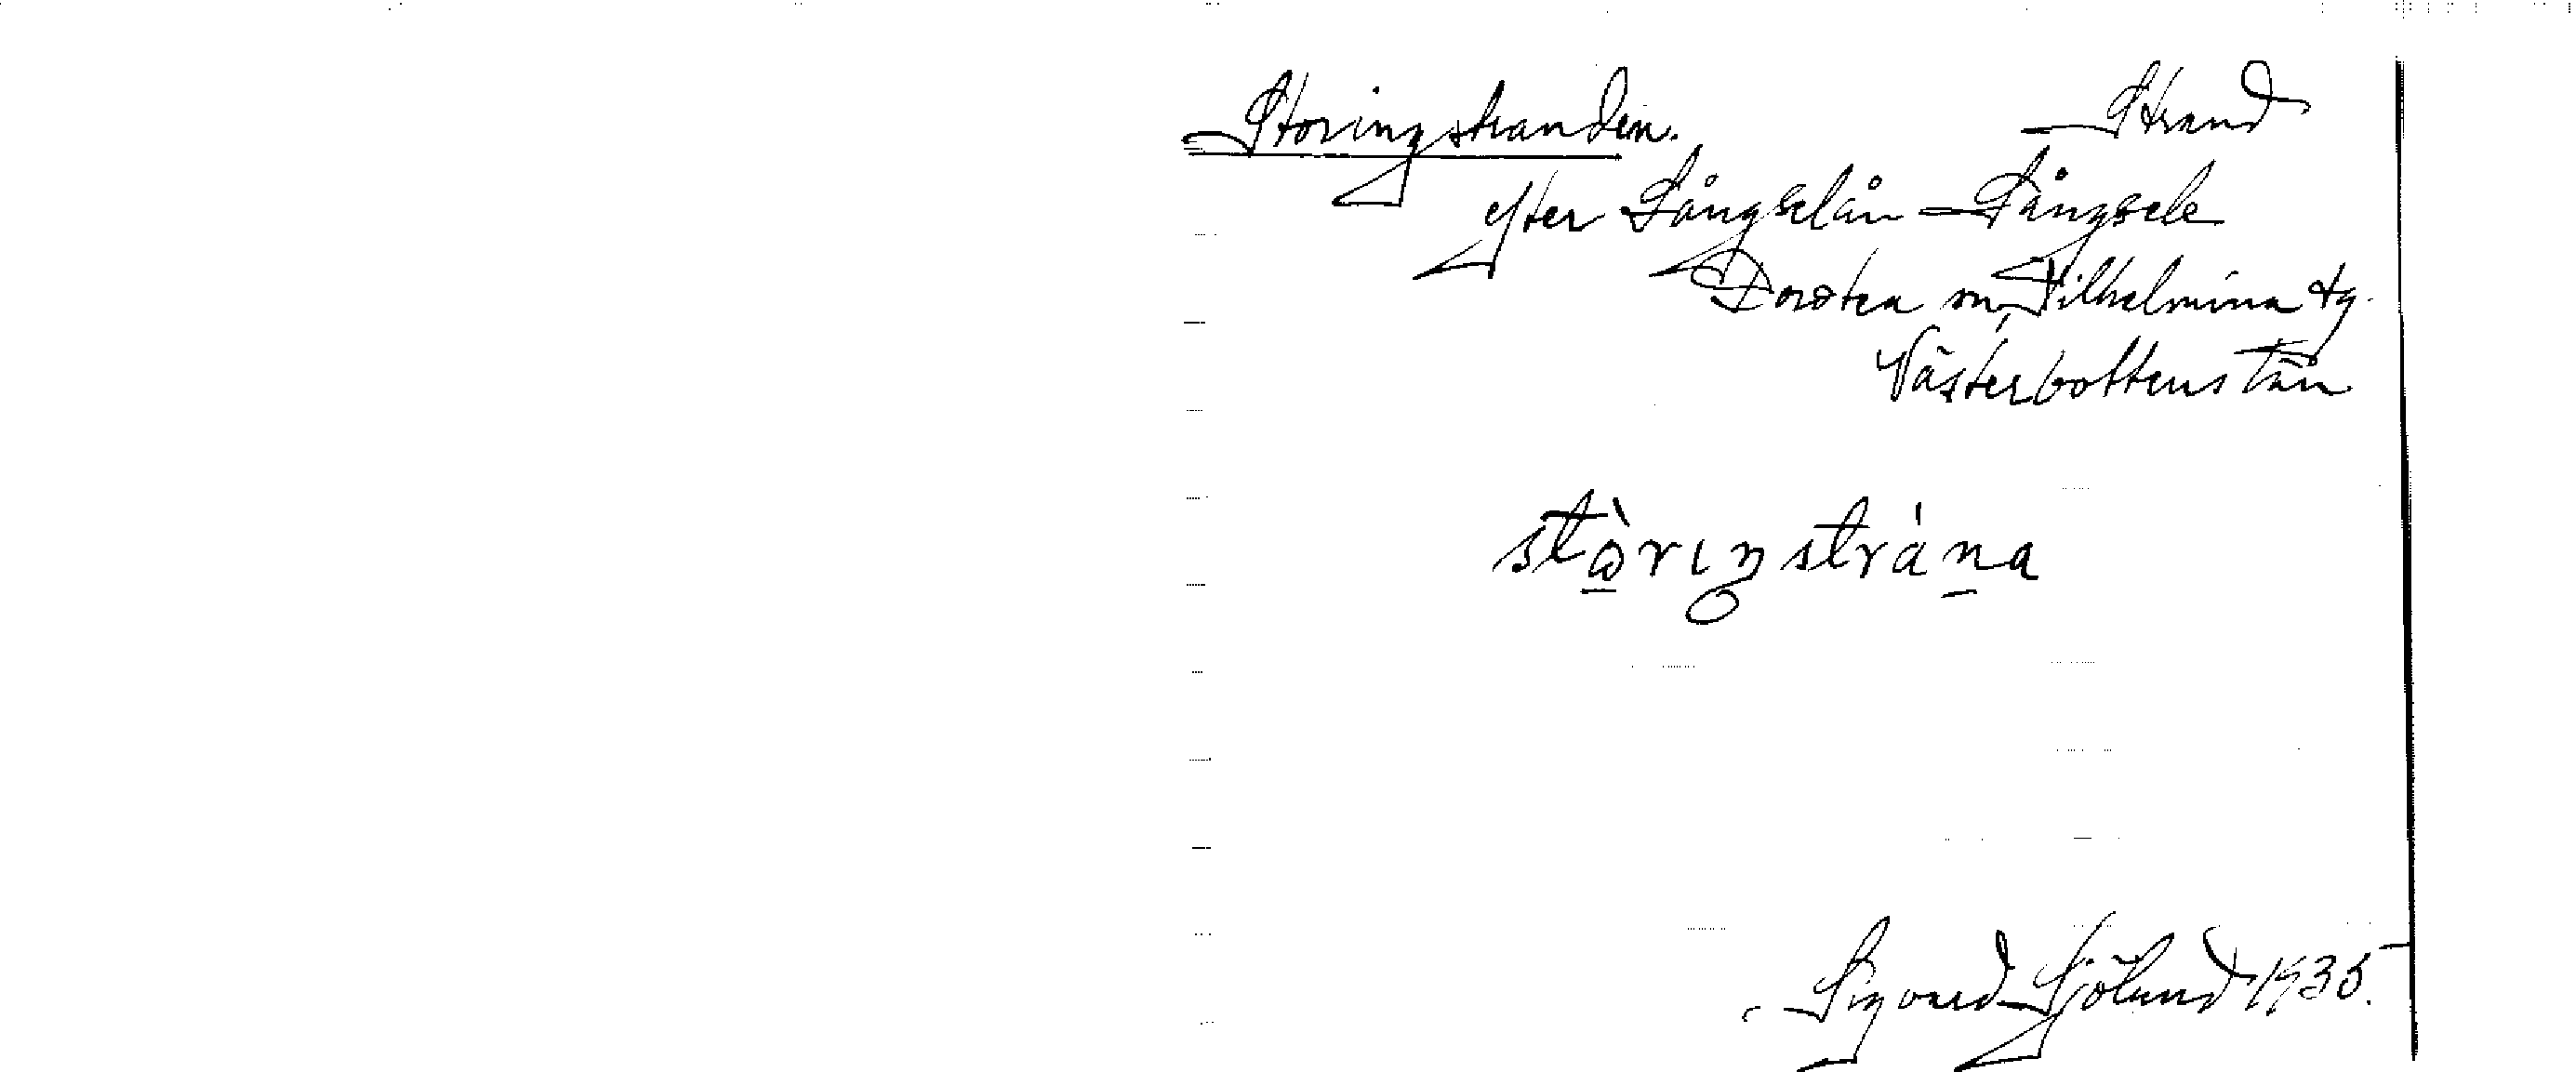 Storingstranden. Strand
yter Långselån - Långsele
Dorotea sn, Vilhelmina tg.
Västerbottens län
stòrıŋstràna
Sigvard Sjölund 1935.